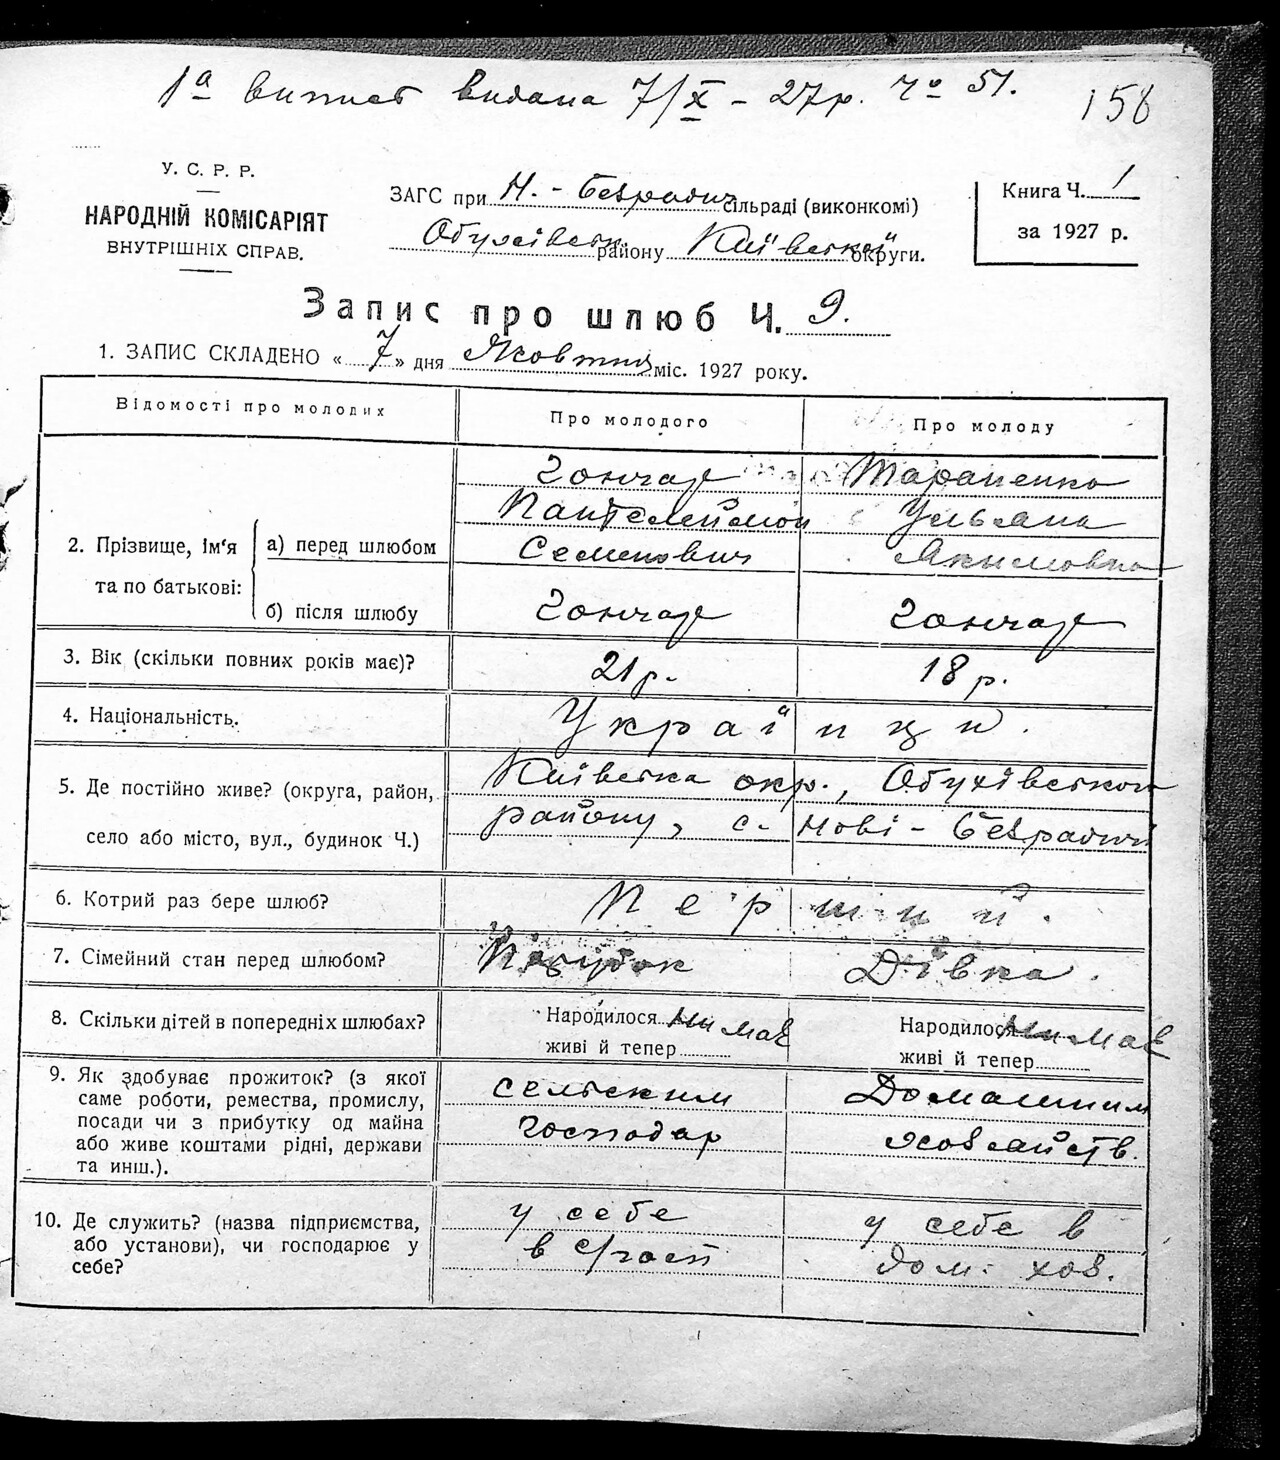 1а випись видана 7/X – 27р. Чо 51.
158
У. С. Р. Р.
НАРОДНІЙ КОМІСАРІЯТ
ВНУТРІШНІХ СПРАВ.
ЗАГС при Н. - Безрадич сільраді (виконкомі)
Обухівськ району Київської округи.
Книга Ч. 1
за 1927 р.
Запис про шлюб Ч. 9.
1. ЗАПИС СКЛАДЕНО « 7 » дня Жовтня міс. 1927 року.
Відомості про молодих Про молодого Про молоду
2. Прізвище, ім'я та по батькові:
а) перед шлюбом
Гончар Тараненко
Пантелеймон Ульяна
Семенович Якимовна
б) після шлюбу Гончар Гончар
3. Вік (скільки повних років має)? 21р. 18р.
4. Національність. Українци.
5. Де постійно живе? (округа, район, Київська окр., Обухівського
село або місто, вул., будинок Ч.) району, с. Нові - Безрадичі
6. Котрий раз бере шлюб? Перший.
7. Сімейний стан перед шлюбом? Парубок Дівка.
8. Скільки дітей в попередніх шлюбах? Народилося Ни має Народилося Ни має
живі й тепер живі й тепер
9. Як здобуває прожиток? (з якої сельским Домашним
саме роботи, ремества, промислу, господар хозяйств.
посади чи з прибутку од майна
або живе коштами рідні, держави
та инш.).
10. Де служить? (назва підприємства, у себе у себе в
або установи), чи господарює у в с/госп дом. хоз.
себе?